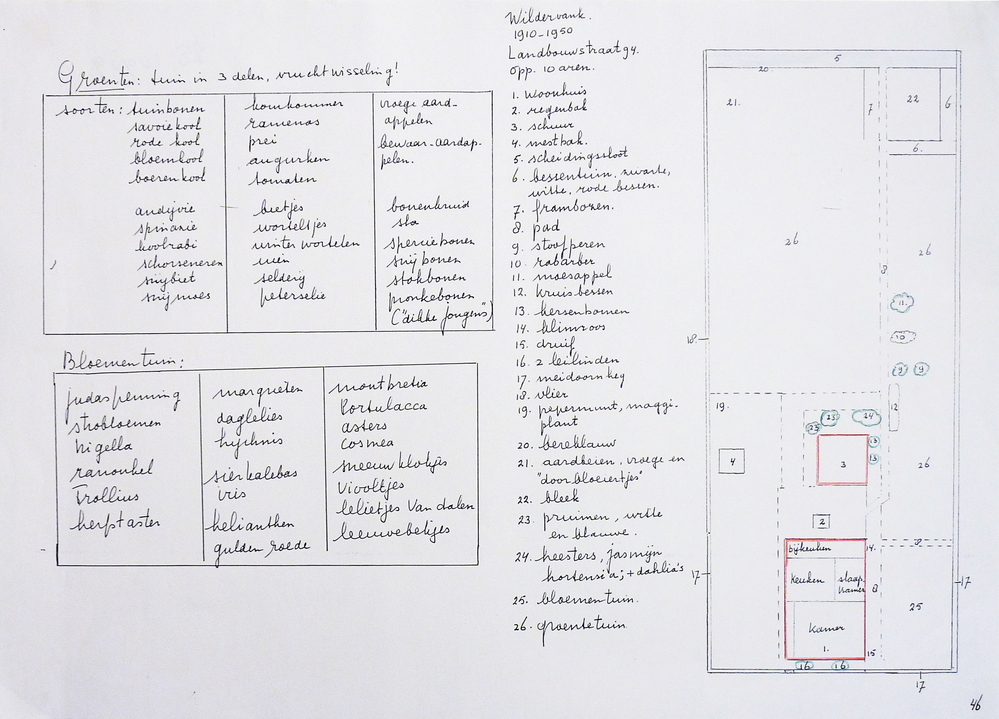 Groenten: tuin in 3 delen, vruchtwisseling!
soorten: tuinbonen
savoiekool
rode kool
bloemkool
boerenkool
andijvie
spinazie
koolrabi
schorseneren
snijbiet
snijmoes
komkommer
ramenas
prei
augurken
tomaten
bietjes
worteltjes
winterwortelen
uien
selderij
peterselie
vroege aard-
appelen
bewaar-aardap-
pelen.
bonenkruid
sla
sperciebonen
snijbonen
stokbonen
pronkebonen
("dikke jongens")
Bloementuin:
judaspenning
strobloemen
nigella
ranonkel
Trollius
herfstaster
margrieten
daglelies
lychnis
sierkalebas
iris
helianthen
gulden roede
montbretia
Portulacca
asters
cosmea
sneeuwklokjes
viooltjes
lelietjes Van dalen
leeuwebekjes
Wildervank.
1910-1950
Landbouwstraat 94.
opp. 10 aren.
1. woonhuis
2. regenbak
3. schuur
4. mestbak.
5. scheidingssloot
6. bessentuin, zwarte,
witte, rode bessen.
7. frambozen.
8. pad
9. stoofperen
10. rabarber
11. moesappel
12. kruisbessen
13. kersenbomen
14. klimroos
15. druif
16. 2 leilinden
17. meidoornheg
18. vlier
19. pepermunt, maggi-
plant
20. bereklauw
21. aardbeien, vroege en
"doorbloeiertjes"
22. bleek
23. pruimen, witte
en blauwe.
24. heesters, jasmijn
hortensia; + dahlia's
25. bloementuin.
26. groentetuin.
5
20.
21.
7
22
6
6.
26
8
26
11.
10
18.
9 9
19.
12
23
24
23
13
13
4
3
26
2
8
bijkeuken
14.
keuken
slaap
kamer
8
17
17
25
kamer
1.
15
16
16
17
46